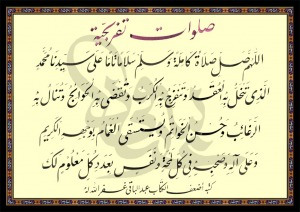 صلوات تفريجية
اللهم صل صلاة كاملة وسلم سلاما تاما على سيدنا محمد
الذي تنحل به العقد وتنفرج به الكرب وتقضى به الحوائج وتنال به
الرغائب وحسن الخواتم ويستسقى الغمام بوجهه الكريم
وعلى آله وصحبه في كل لمحة ونفس بعدد كل معلوم لك
كتبه أضعف الكتاب عبد الباقي غفر الله له